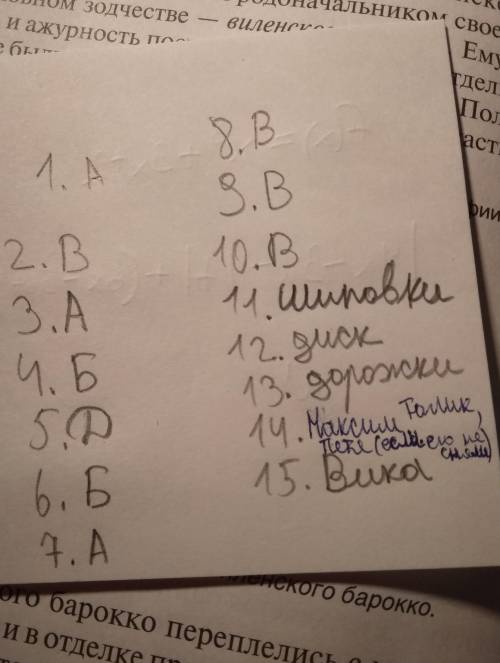 зодчестве — виленско
родоначальником свое
и ажурность пос
Ему
1. А
2. В
3. А
4. Б
5. Д
6. Б
7. А
8. В
9. В
10. В
11. шиповки
12. диск
13. дорожки
14. Максим, Толик,
Петя (если его не
сняли)
15. Вика
ленского барокко.
ого барокко переплелись с
и в отделке